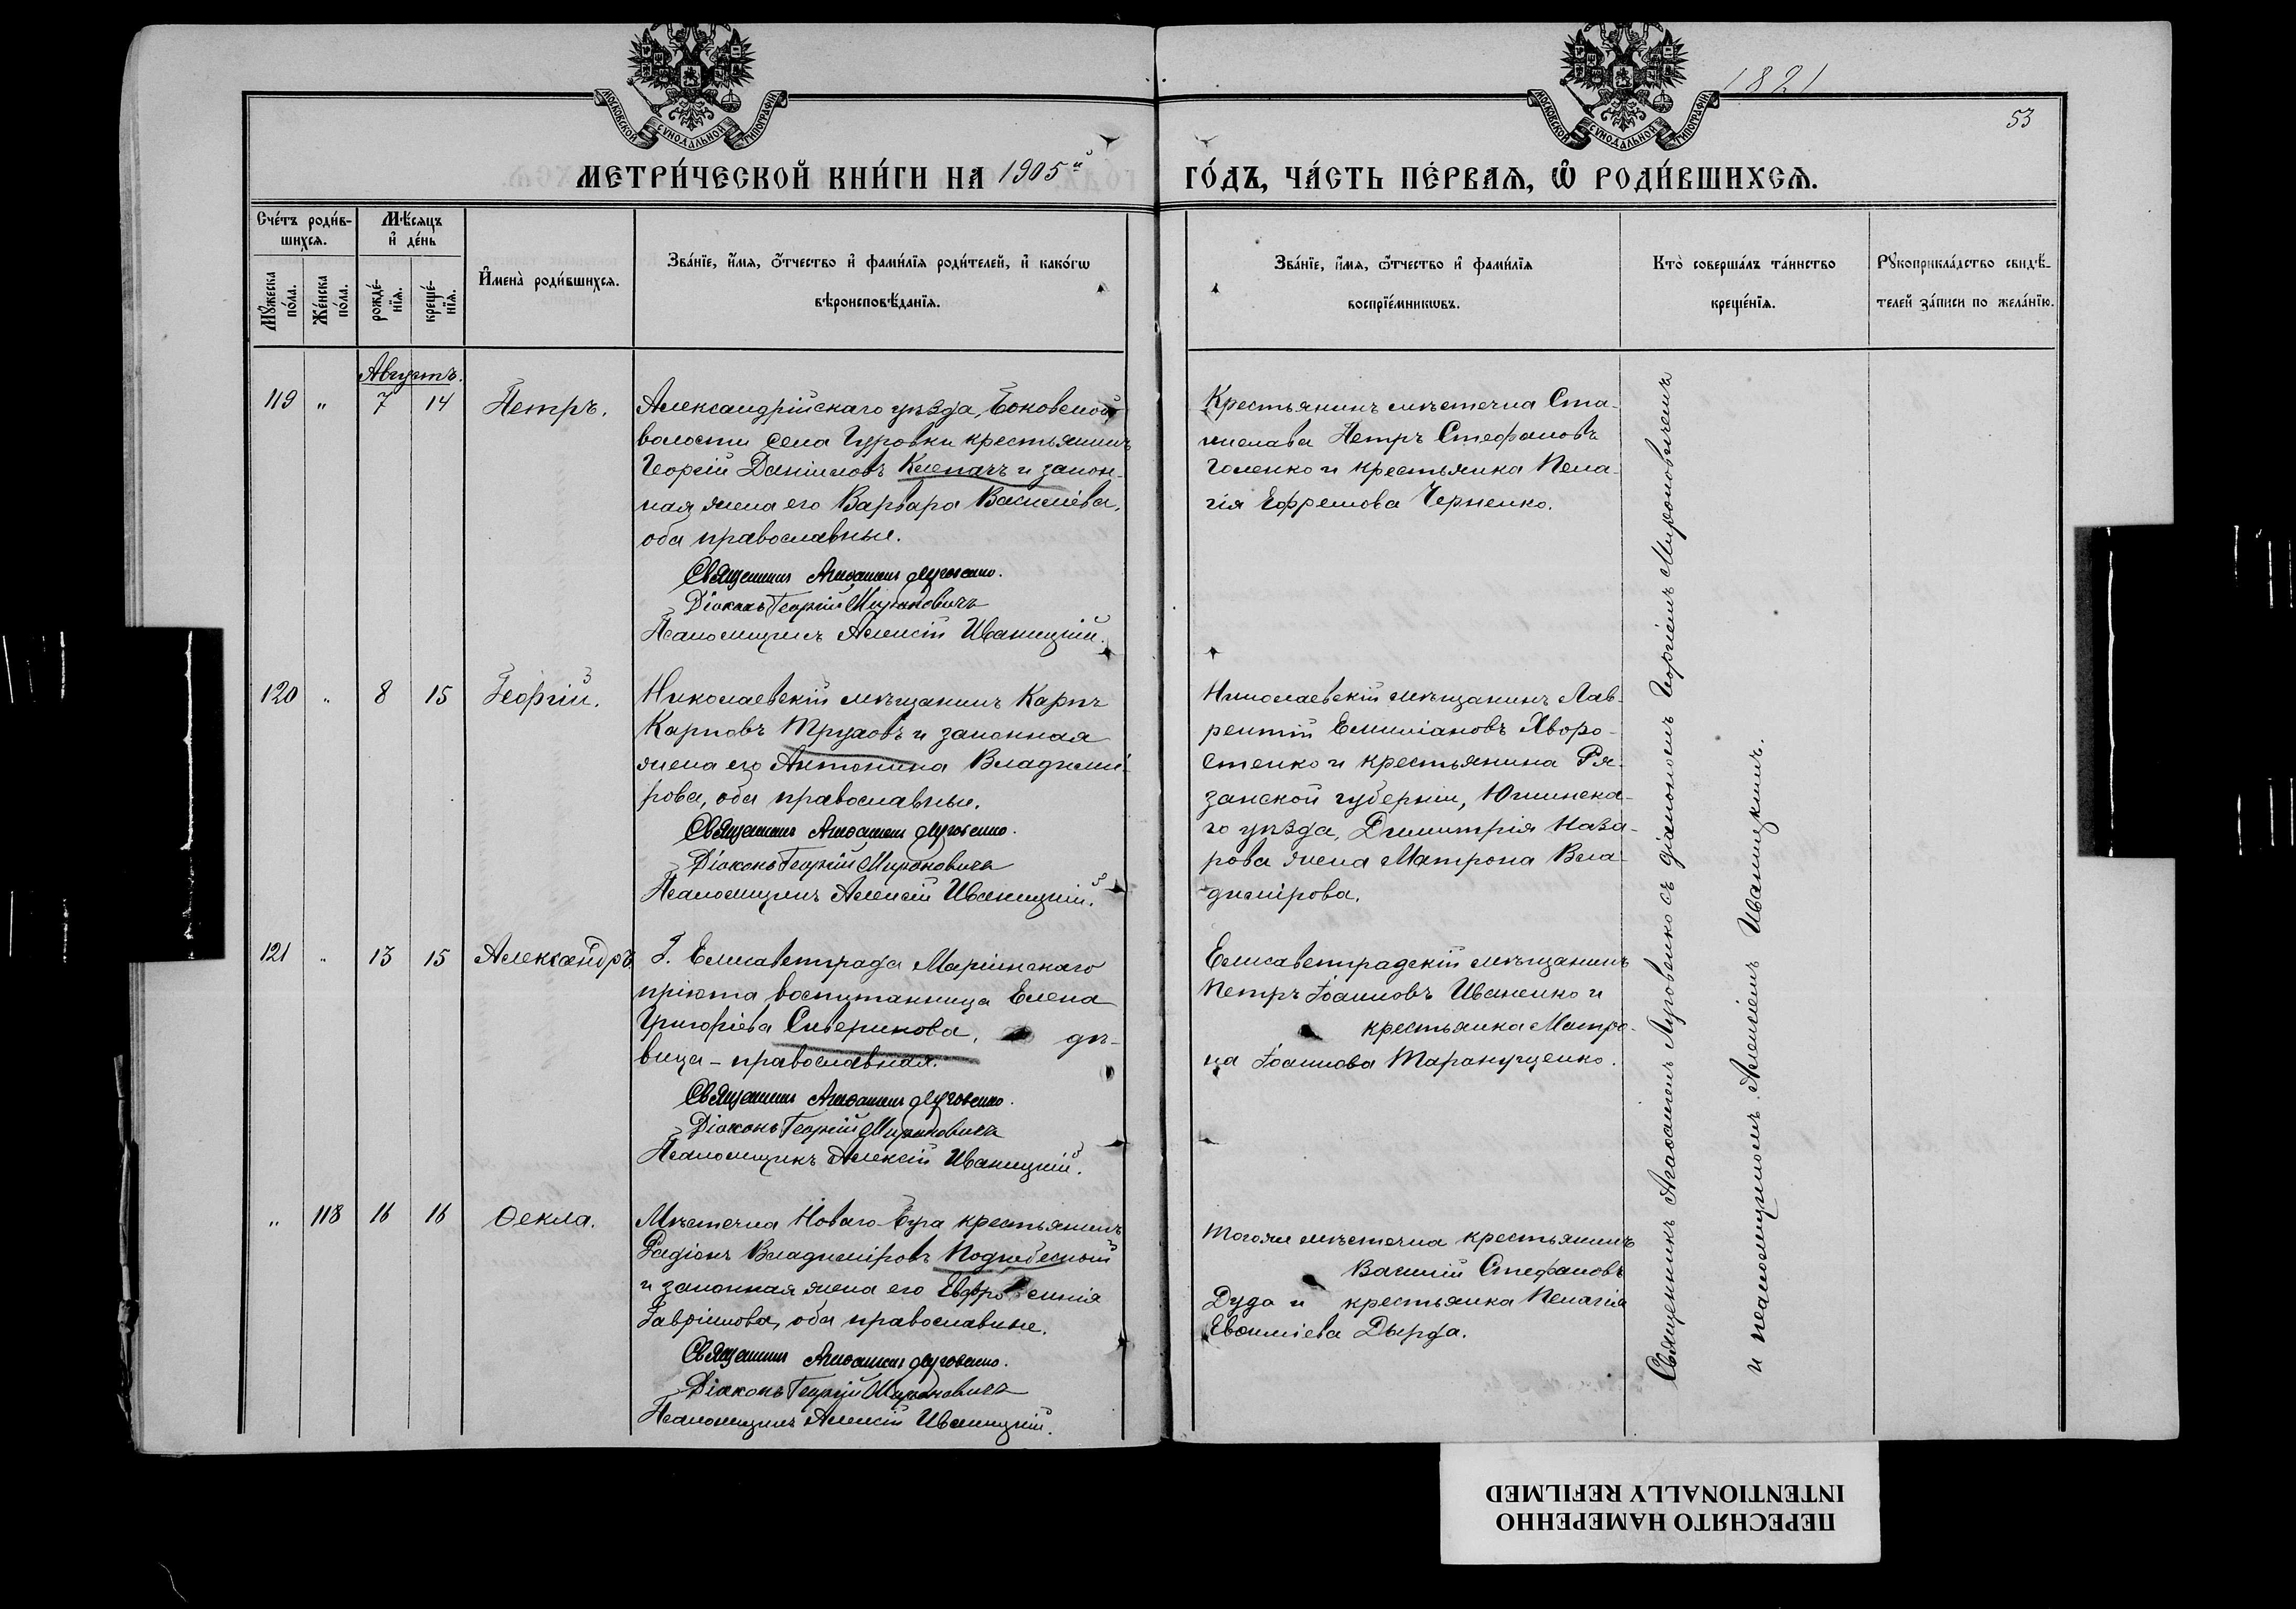 1821
53
МОСКОВСКОЙ СѴНОДАЛЬНОЙ ТИПОГРАФІИ
МОСКОВСКОЙ СѴНОДАЛЬНОЙ ТИПОГРАФІИ
МЕТРИ́ЧЕСКОЙ КНИ́ГИ НА 1905й
ГО́ДЪ, ЧА́СТЬ ПЕ́РВАѦ, Ѽ РОДИ́ВШИХСѦ.
Сче́тъ роди́в-
шихсѧ.
Мѣ́сяцъ
и҆ де́нь
Мꙋ́жеска
по́ла.
Же́нска
по́ла.
рожде́-
нїѧ.
креще́-
нїѧ.
И҆мена̀ роди́вшихсѧ.
Зва́нїе, и҆́мѧ, ѻ҆́тчество и҆ фами́лїѧ роди́телей, и҆ како́гѡ
вѣроисповѣ́данїѧ.
Зва́нїе, и҆́мѧ, ѻ҆́тчество и҆ фами́лїѧ
воспрїе́мникѡвъ.
Кто̀ соверша́лъ та́инство
креще́нїѧ.
Рꙋкоприкла́дство свидѣ́-
телей за́писи по жела́нїю.
Августъ.
119 " 7 14 Петръ.
Александрійскаго уѣзда, Боковской
волости села Гуровки крестьянинъ
Георгій Даніиловъ Клепачъ и закон-
ная жена его Варвара Василіева,
оба православные.
Священникъ Агаѳангелъ Луговенко.
Діаконъ Георгій Мироновичъ
Псаломщикъ Алексій Иваницкій.
Крестьянинъ мѣстечка Ста-
нислава Петръ Стефановъ
Голенко и крестьянка Пела-
гія Ефремова Черненко.
120 " 8 15 Георгій.
Николаевскій мѣщанинъ Карпъ
Карповъ Труховъ и законная
жена его Антонина Владимі-
рова, оба православные.
Священникъ Агаѳангелъ Луговенко.
Діаконъ Георгій Мироновичъ
Псаломщикъ Алексій Иваницкій.
Николаевскій мѣщанинъ Лав-
рентій Емиліановъ Хворо-
стенко и крестьянина Ря-
занской губерніи,
го уѣзда, Димитрія Наза-
рова жена Матрона Вла-
димірова.
121 " 13 15 Александръ
Г. Елисаветграда Маріинскаго
пріюта воспитанница Елена
Григоріева Сиверинова, дѣ-
вица - православная.
Священникъ Агаѳангелъ Луговенко.
Діаконъ Георгій Мироновичъ
Псаломщикъ Алексій Иваницкій.
Елисаветградскій мѣщанинъ
Петръ Іоанновъ Иваненко и
крестьянка Матро-
на Іоаннова Таранущенко.
" 118 16 16 Ѳекла.
Мѣстечка Новаго-Буга крестьянинъ
Радіонъ Владиміровъ Поднебесный
и законная жена его Евфросинія
Гавріилова, оба православные.
Священникъ Агаѳангелъ Луговенко.
Діаконъ Георгій Мироновичъ
Псаломщикъ Алексій Иваницкій.
Тогоже мѣстечка крестьянинъ
Василій Стефановъ
Дуда и крестьянка Пелагія
Евѳиміева Дырда.
Священникъ Агаѳангелъ Луговенко съ діакономъ Георгіемъ Мироновичемъ
и псаломщикомъ Алексіемъ Иваницкимъ.
ПЕРЕСНЯТО НАМЕРЕННО
INTENTIONALLY REFILMED